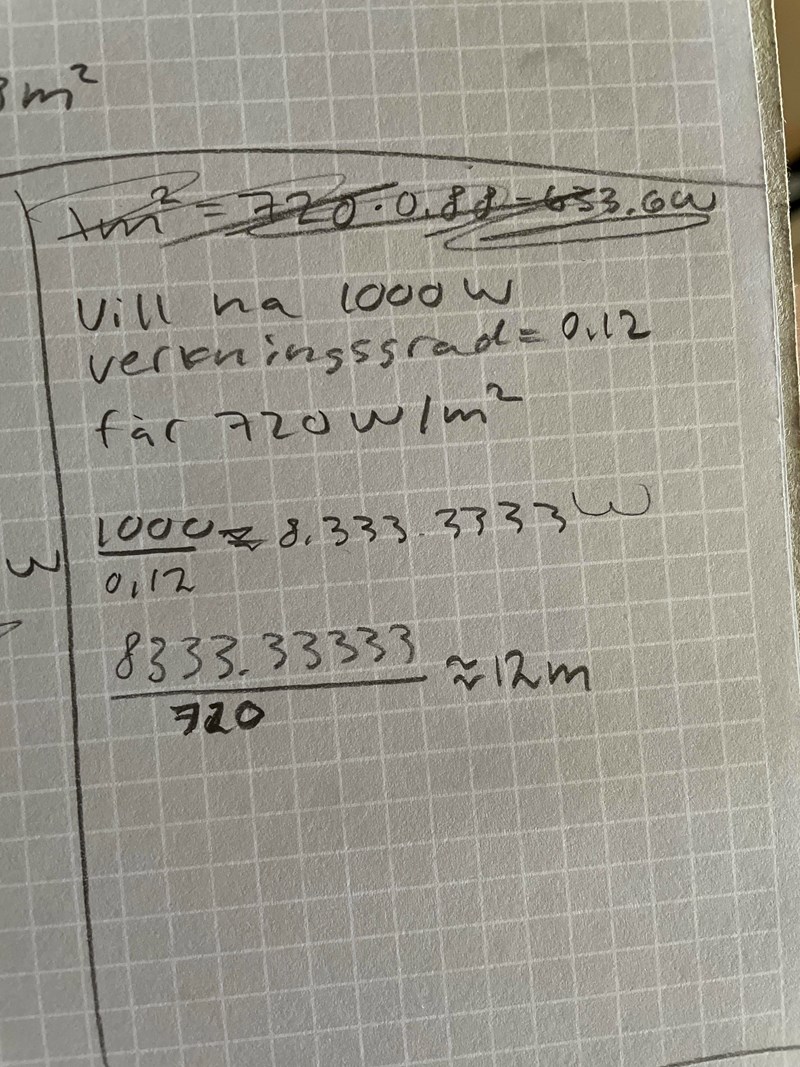 3m²
1m² = 720·0.88=633.6W
Vill ha 1000W
verkningssgrad= 0,12
får 720W/m²
1000 ≈ 8.333.3333W
0,12
W
8333.33333 ≈12m
720